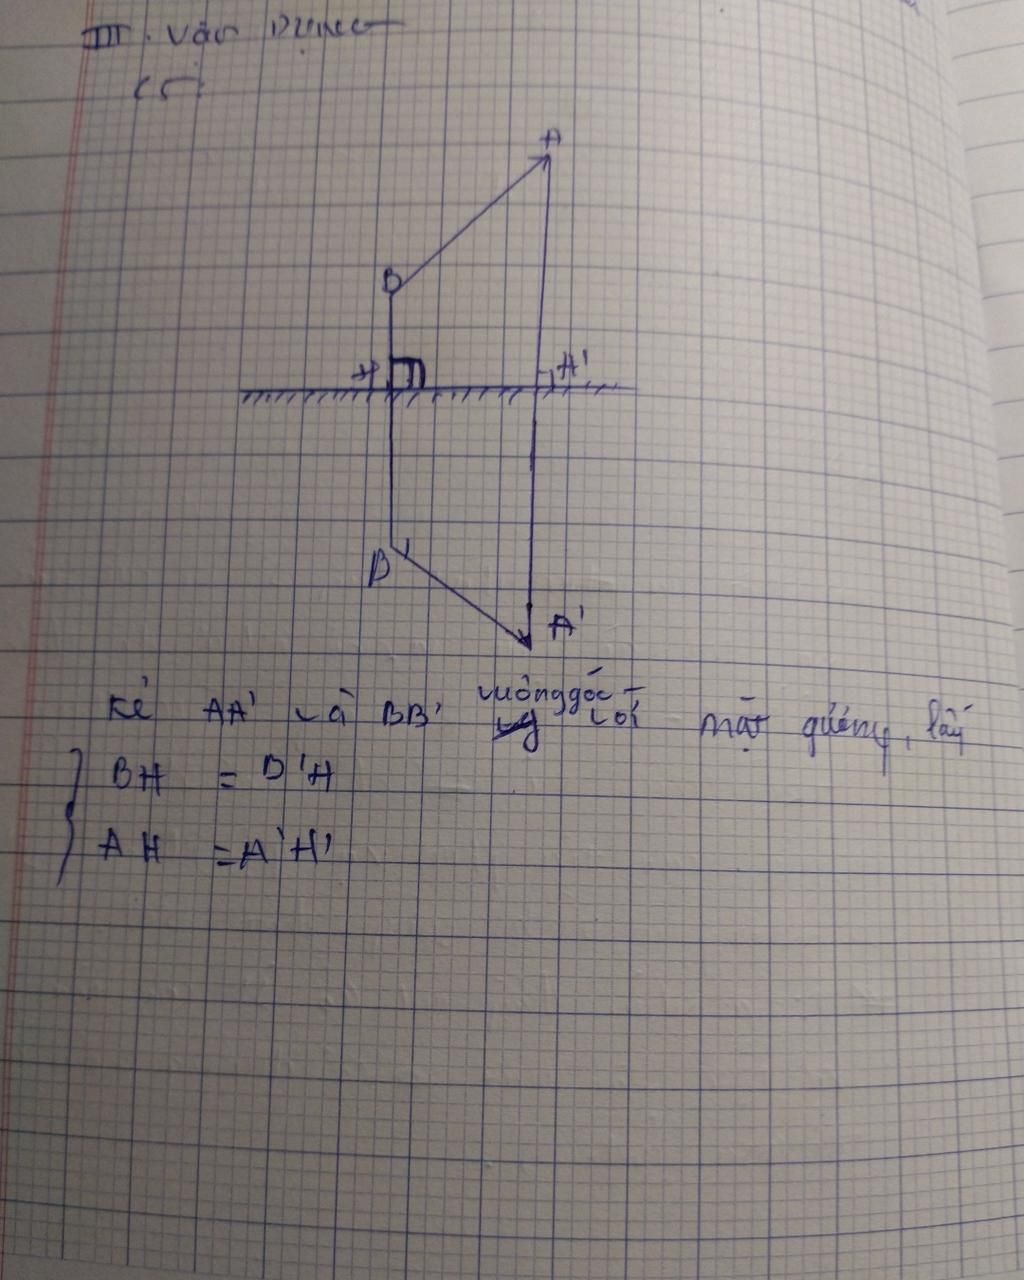 III. Vận Dụng
C5:
A
B
H
H'
B'
A'
kẻ AA' và BB' vuông góc với mặt gương, lấy
BH = B'H
AH = A'H'